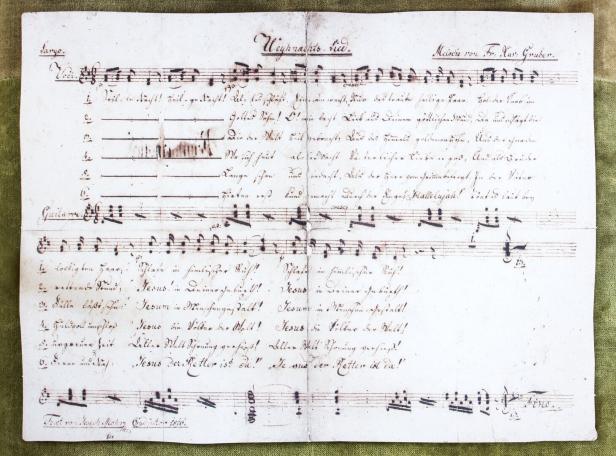 Largo. Weyhnachts-Lied. Melodie von Fr. Xav. Gruber.
Voci
1. Stille Nacht! Heilige Nacht! Alles schläft. Einsam wacht. Nur das traute heilige Paar. Holder Knab im
2. Gottes Sohn! O! wie lacht Lieb' aus deinem göttlichen Mund, Da uns schlägt die
3. Die der Welt Heil gebracht, Aus des Himmels goldenen Höhn, Aus der Gnaden
4. Wo sich heut alle Macht Väterlicher Liebe ergoß, Und als Bruder
5. Lange schon uns bedacht, Als der Herr vom Grimme befreyt In der Väter
6. Hirten erst kund gemacht Durch der Engel Hallelujah! Tönt es laut bey
Guitarre
1. lockigten Haar, Schlafe in himmlischer Ruh! Schlafe in himmlischer Ruh!
2. rettende Stund'. Jesus! in deiner Geburt! Jesus in deiner Geburt!
3. Fülle läßt seh'n: Jesum in Menschengestalt! Jesum in Menschengestalt!
4. Huldvoll umschloß Jesus die Völker der Welt! Jesus die Völker der Welt!
5. urgrauer Zeit Aller Welt Schonung verhieß! Aller Welt Schonung verhieß!
6. Ferne und Nah: "Jesus der Retter ist da!" "Jesus der Retter ist da!"
Fine.
Text von Joseph Mohr Coadjutor 1816.